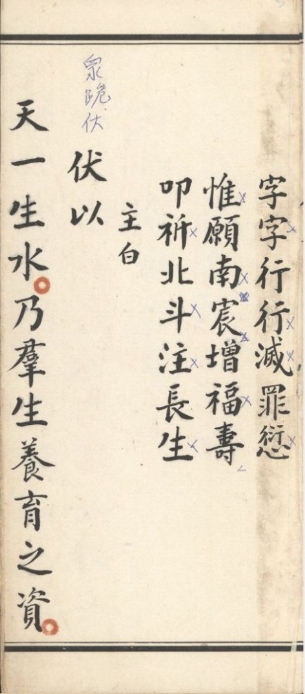 字字行行滅罪愆
惟願南宸增福壽
叩祈北斗注長生
主白
伏以
眾跪伏
天一生水乃羣生養育之資